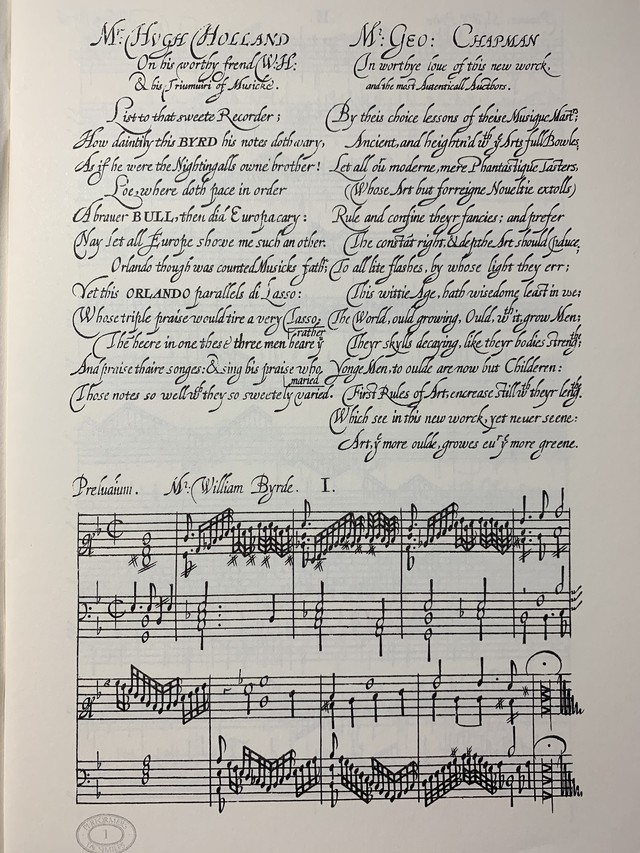 Mr. Hugh Holland
On his worthy frend W.H:
& his Triumuiri of Musicke.
List to that sweete Recorder;
How daintily this BYRD his notes doth vary,
As if he were the Nightingalls owne brother!
Loe, where doth pace in order
A brauer BULL, then did Europa cary:
Nay let all Europe showe me such an other.
Orlando though was counted Musicks fath';
Yet this ORLANDO parallels di Lasso:
Whose triple praise would tire a very Tasso;
The heere in one these three men heare yͤ rather
And praise thaire songes: & sing his praise who maried
Those notes so well wͭͪ they so sweetely varied.
Mr. Geo: Chapman
In worthye loue of this new worck,
and the most Autenticall Aucthors.
By theis choice lessons of theise Musique Mastͬˢ;
Ancient, and heightn'd wͭͪ yͤ Arts full Bowles,
Let all oͧ moderne, mere Phantastique Tasters,
(Whose Art but forreigne Noueltie extolls)
Rule and confine theyr fancies; and prefer
The constāt right, & depthe Art should ꝓduce,
To all lite flashes, by whose light they err;
This wittie Age, hath wisedome least in vse;
The World, ould growing, Ould, wͭͪ it, grow Men;
Theyr skylls decaying, like theyr bodies strengͭͪ;
Yonge Men, to oulde are now but Childeren:
First Rules of Art, encrease still wͭͪ theyr lengͭͪ.
Which see in this new worck, yet neuer seene:
Art, yͤ more oulde, growes euͬ yͤ more greene.
Preludium. Mr. William Byrde. I.
PERFORMERS
1
FACSIMILES